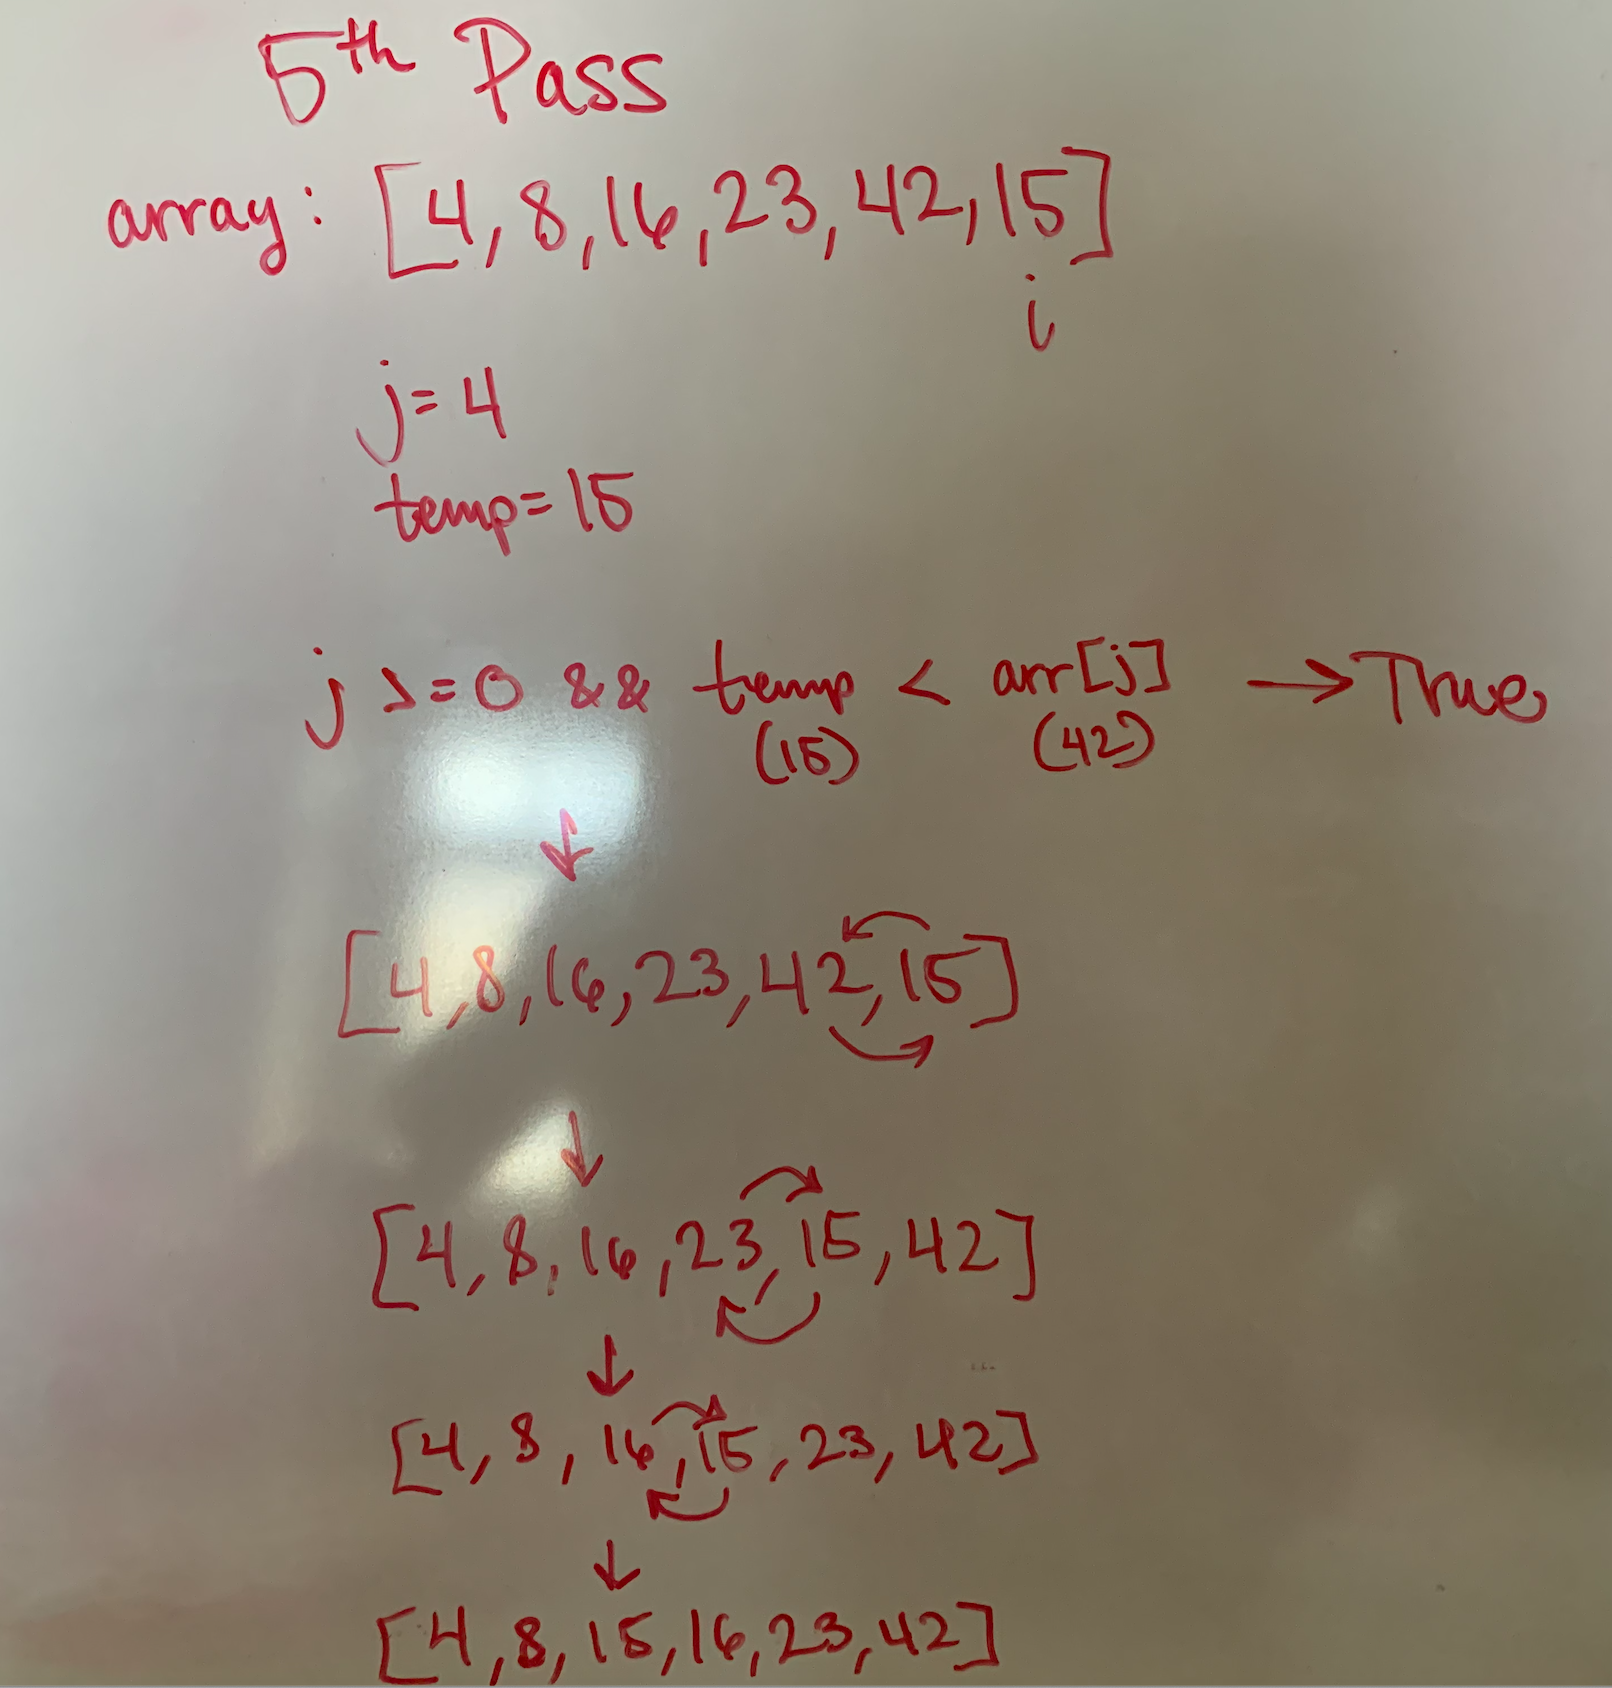 5th Pass
array: [4, 8, 16, 23, 42, 15]
i
j = 4
temp = 15
j >= 0 && temp < arr[j] → True
(15) (42)
↓
[4, 8, 16, 23, 42, 15]
↓
[4, 8, 16, 23, 15, 42]
↓
[4, 8, 16, 15, 23, 42]
↓
[4, 8, 15, 16, 23, 42]